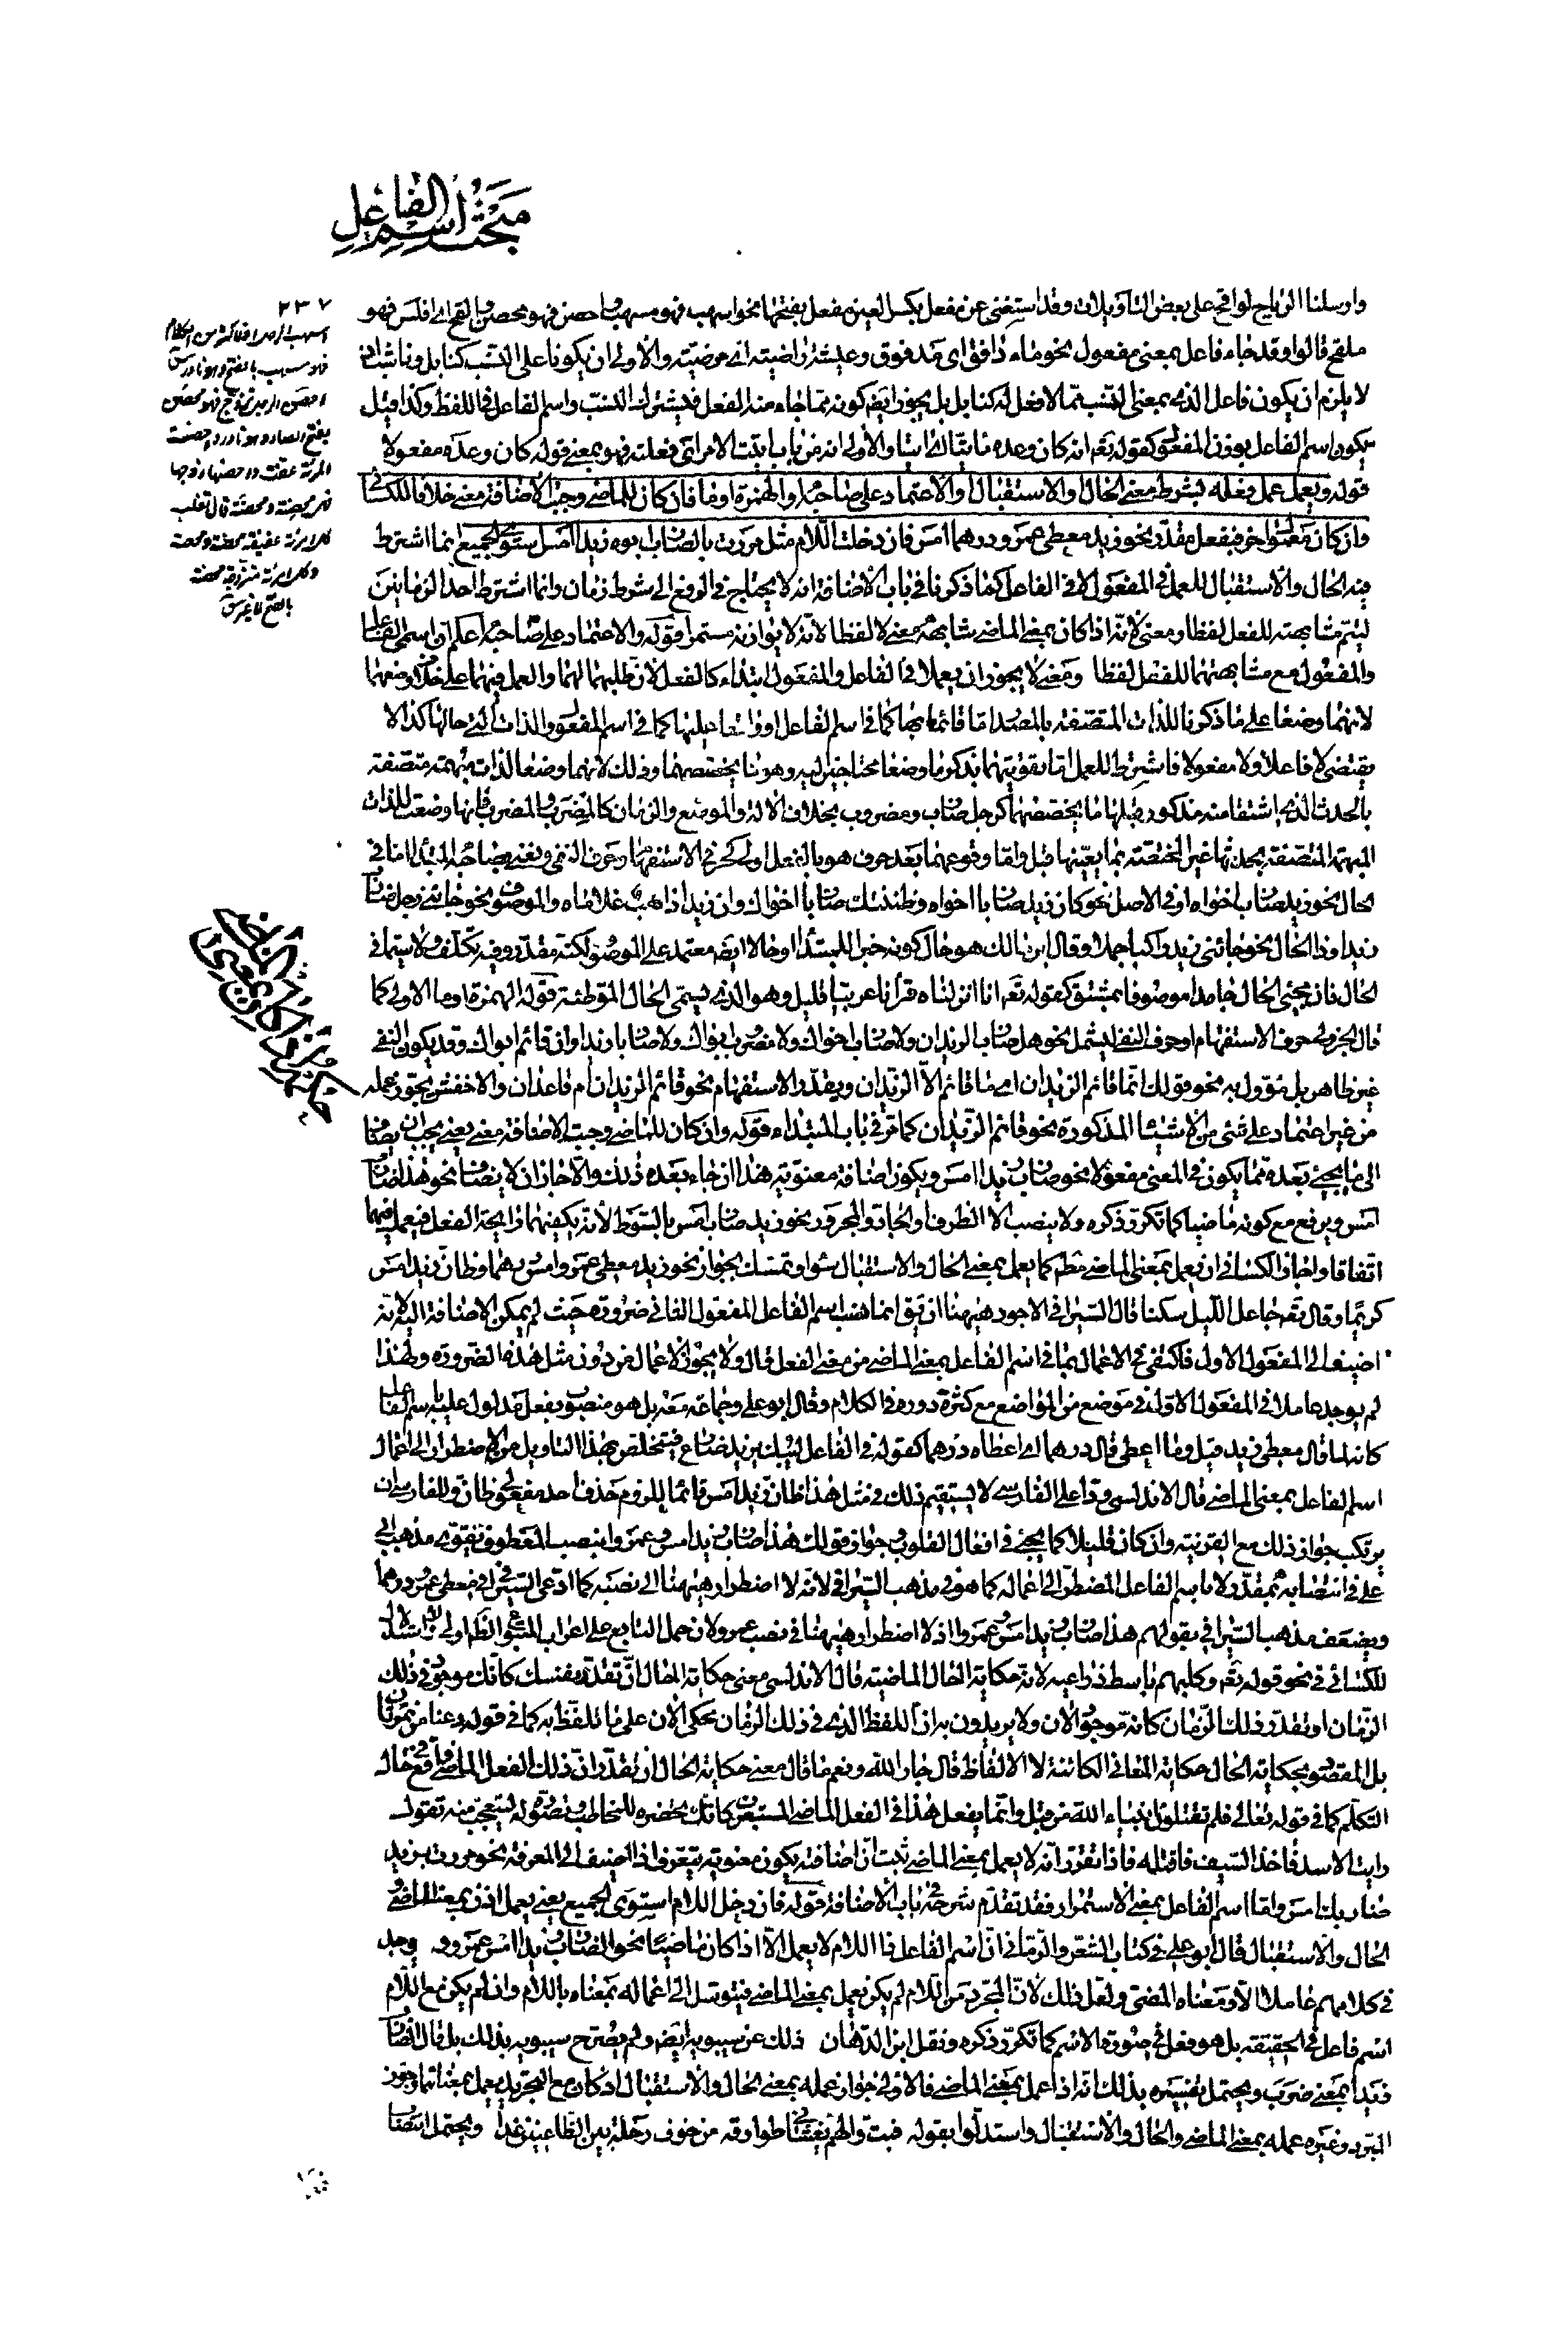 مبحث اسم الفاعل
٢٣٧
وارسلنا الرياح لواقح على بعض التاويلات وقد استغنى عن مفعل بكسر العين بمفعل بفتحها نحو اسهب فهو مسهب واحصن فهو محصن والفج اى افلس فهو
ملفج قالوا وقد جاء فاعل بمعنى مفعول نحو ماء دافق اى مدفوق وعيشة راضية اى مرضية والاولى ان يكونا على النسب كنابل وناشب اذ
لا يلزم ان يكون فاعل الذى بمعنى النسب مما لا فعل له كنابل بل يجوز ايضا كونه مما جاء منه الفعل فيشترك النسب واسم الفاعل فى اللفظ وكذا قيل
يكون اسم الفاعل بمعنى المفعول كقوله تعالى انه كان وعده ماتيا اى اتيا والاولى انه من باب اتيت الامر اى فعلته فهو بمعنى قوله كان وعده مفعولا
قوله ويعمل عمل فعله بشرط معنى الحال والاستقبال والاعتماد على صاحبه او الهمزة او ما فان كان للماضى وجب الاضافة معنى خلافا للكسائى
وان كان معمول اخر فبفعل مقدر نحو زيد معطى عمرو درهما امس فان دخلت اللام مثل مررت بالضارب ابوه زيدا امس استوى الجميع انما اشترط
فيه الحال والاستقبال للعمل فى المفعول لا فى الفاعل كما ذكرنا فى باب الاضافة انه لا يحتاج فى الرفع الى شرط زمان وانما اشترط احد الزمانين
ليتم مشابهته للفعل لفظا ومعنى لانه اذا كان بمعنى الماضى شابهه معنى لا لفظا لانه لا يوازنه مستمرا قوله والاعتماد على صاحبه اعلم ان اسمى الفاعل
والمفعول مع مشابهتهما للفعل لفظا ومعنى لا يجوز ان يعملا فى الفاعل والمفعول ابتداء كالفعل لان طلبهما لهما والعمل فيهما على خلاف وضعهما
لانهما وضعا على ما ذكرنا للذات المتصفة بالمصدر اما قائما بها كما فى اسم الفاعل او واقعا عليها كما فى اسم المفعول والذات التى حالها كذا لا
يقتضى لا فاعلا ولا مفعولا فاشترط للعمل اما تقويتهما بذكر ما وضعا محتاجين اليه وهو ما يخصصهما وذلك لانهما وضعا لذات مبهمة متصفة
بالحدث الذى اشتقا منه مذكور قبلهما ما يخصصهما كرجل ضارب ومضروب بخلاف الالة والموضع والزمان كالمضرب والمضرب فانها وضعت للذات
المبهمة المتصفة بحدثها غير المختصة بما يعينها قبل واما وقوعهما بعد حرف هو بالفعل اولى كحرفى الاستفهام وحرف النفى ويعنى بصاحبه المبتدأ اما فى
الحال نحو زيد ضارب اخواه او فى الاصل نحو كان زيد ضاربا اخواه وظننتك ضاربا اخواك وان زيدا ذاهب غلاماه والموصوف نحو جائنى رجل ضارب
زيدا وذا الحال نحو جائنى زيد راكبا جملا وقال ابن مالك هو حال كونه خبرا للمبتدأ او حالا ايضا معتمد على الموصوف لكنه مقدر وفيه تكلف ولا سيما فى
الحال فان مجيئ الحال جامدا موصوفا بمشتق كقوله تعالى انا انزلناه قرآنا عربيا قليل وهو الذى يسمى الحال الموطئة قوله الهمزة او ما الاولى كما
قال الجزولى حرف الاستفهام او حرف النفى ليشمل نحو هل ضارب الزيدان ولا ضارب اخواك ولا مضروب ابواك ولا ضاربا زيدا وان قائم ابواك وقد يكون النفى
غير ظاهر بل مؤول به نحو قولك انما قائم الزيدان اى ما قائم الا الزيدان ويقدر الاستفهام نحو قائم الزيدان ام قاعدان والاخفش يجوز عمله
من غير اعتماد على شئ من الاشياء المذكورة نحو قائم الزيدان كما مر فى باب المبتداء قوله وان كان للماضى وجبت الاضافة معنى يعنى يجب ان يضاف
الى ما يجيئ بعده مما يكون فى المعنى مفعولا نحو ضارب زيد امس ويكون اضافة معنوية هذا ان جاء بعده ذلك والا جاز ان لا يضاف نحو هذا ضارب
امس ويرفع مع كونه ماضيا كما تكرر ذكره ولا ينصب الا الظرف او الجار والمجرور نحو زيد ضارب امس بالسوط لانه يكفيهما رائحة الفعل فيعمل فيهما
اتفاقا واجاز الكسائى ان يعمل بمعنى الماضى مطلقا كما يعمل بمعنى الحال والاستقبال سواء وتمسك بجواز نحو زيد معطى عمرو امس درهما وظان زيد امس
كريما وقال تعالى جاعل الليل سكنا قال السيرافى الاجود ههنا ان يقال انما نصب اسم الفاعل المفعول الثانى ضرورة حيث لم يمكن الاضافة اليه لانه
اضيف الى المفعول الاول فاكتفى فى الاعمال بما فى اسم الفاعل بمعنى الماضى من معنى الفعل قال ولا يجوز الاعمال من دون مثل هذه الضرورة ولهذا
لم يوجد عاملا فى المفعول الاول فى موضع من المواضع مع كثرة دوره فى الكلام وقال ابو على وجماعة معه بل هو منصوب بفعل مدلول عليه باسم الفاعل
كانه لما قال معطى زيد قيل وما اعطى قال درهما اى اعطاه درهما كقوله فى الفاعل ليبك يزيد ضارع فيتخلص بهذا التاويل من الاضطرار الى اعمال
اسم الفاعل بمعنى الماضى قال الاندلسى ردا على الفارسى لا يستقيم ذلك فى مثل هذا ظان زيد امس قائما للزوم حذف احد مفعولى ظان وللفارسى ان
يرتكب جواز ذلك مع القرينة وان كان قليلا كما يجيئ فى افعال القلوب وجواز قولك هذا ضارب زيد امس وعمروا بنصب المعطوف تقوى مذهب ابى
على فى انتصابه بمقدر لا باسم الفاعل المضطر الى اعماله كما هو فى مذهب السيرافى لانه لا اضطرار ههنا الى نصبه كما ادعى السيرافى فى معطى عمرو درهما
ويضعف مذهب السيرافى بقولهم هذا ضارب زيد امس وعمروا اذ لا اضطرار ههنا فى نصب عمرو لان حمل التابع على اعراب المتبوع الظاهر اولى ولا استدلال
للكسائى فى نحو قوله تعالى وكلبهم باسط ذراعيه لانه حكاية الحال الماضية قال الاندلسى معنى حكاية الحال ان تقدر نفسك كانك موجود فى ذلك
الزمان او تقدر ذلك الزمان كانه موجود الان ولا يريدون به ان اللفظ الذى فى ذلك الزمان محكى الان على ما تلفظ به كما فى قوله دعنا من تمرتان
بل المقصود بحكاية الحال حكاية المعانى الكائنة لا الالفاظ قال جار الله ونعم ما قال معنى حكاية الحال ان تقدر ان ذلك الفعل الماضى واقع فى حال
التكلم كما فى قوله تعالى فلم تقتلون انبياء الله من قبل وانما يفعل هذا فى الفعل الماضى المستغرب كانك تحضره للمخاطب وتصوره له ليتعجب منه تقول
رايت الاسد فآخذ السيف فاقتله فاذا تقرر انه لا يعمل بمعنى الماضى ثبت ان اضافته يكون معنوية يتعرف اذا اضيف الى المعرفة نحو مررت بزيد
ضاربك امس واما اسم الفاعل بمعنى الاستمرار فقد تقدم شرحه فى باب الاضافة قوله فان دخل اللام استوى الجميع يعنى يعمل اذن بمعنى الماضى و
الحال والاستقبال قال ابو على فى كتاب الشعر والرمانى ان اسم الفاعل ذا اللام لا يعمل الا اذا كان ماضيا نحو الضارب زيدا امس عمرو و يوجد
فى كلامهم عاملا الا ومعناه المضى ولعل ذلك لان المجرد من اللام لم يكن يعمل بمعنى الماضى فيتوسل الى اعماله بمعناه باللام وان لم يكن مع اللام
اسم فاعل فى الحقيقة بل هو فعل فى صورة الاسم كما تكرر ذكره ونقل ابن الدهان ذلك عن سيبويه ايضا ولم يصرح سيبويه بذلك بل قال الضارب
زيدا بمعنى ضرب ويحتمل تفسيره بذلك انه اذا عمل بمعنى الماضى فالاولى جواز عمله بمعنى الحال والاستقبال اذ كان مع التجريد يعمل بمعناهما وجوز
المبرد وغيره عمله بمعنى الماضى والحال والاستقبال واستدلوا بقوله فبت والهم تغشانى طوارقه من خوف رحلة بين الظاعنين غدا ويحتمل انتصاب
اسهب الرجل اذا اكثر من الكلام
فهو مسهب بالفتح وهو نادر ق
احصن الرجل تزوج فهو محصن
بفتح الصاد وهو نادر واحصنت
المرئة عفت واحصنها زوجها
فهى محصنة ومحصنة قال ثعلب
كل امرئة عفيفة محصنة ومحصنة
وكل امرئة متزوجة محصنة
بالفتح لا غير ق